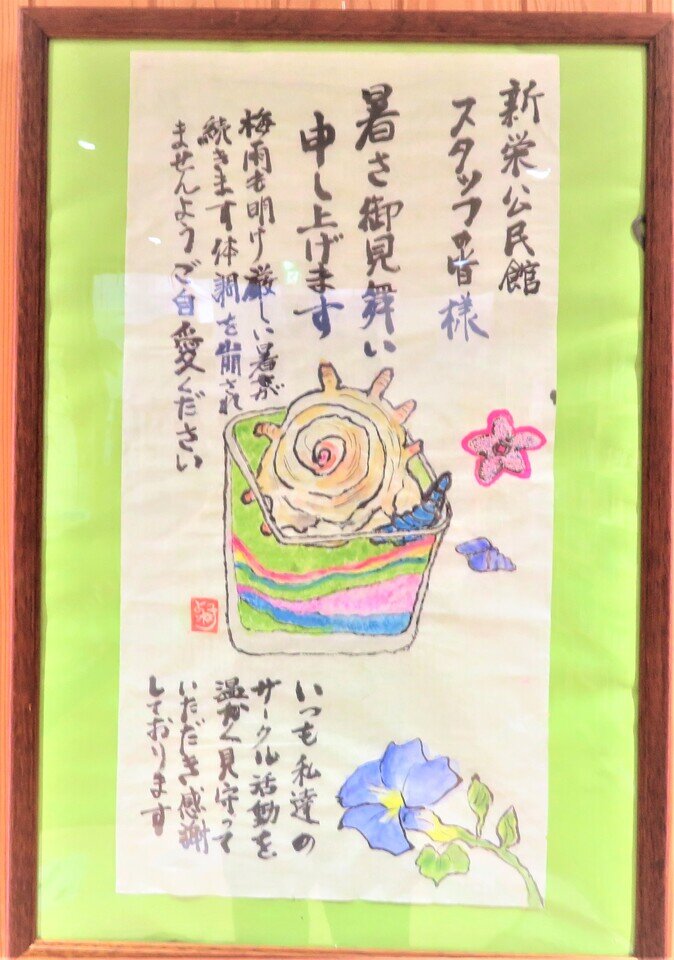 新栄公民館
スタッフ皆様
暑さ御見舞い
申し上げます
梅雨も明け厳しい暑さが
続きます体調を崩され
ませんようご自愛ください
いつも私達の
サークル活動を
温かく見守って
いただき感謝
しております